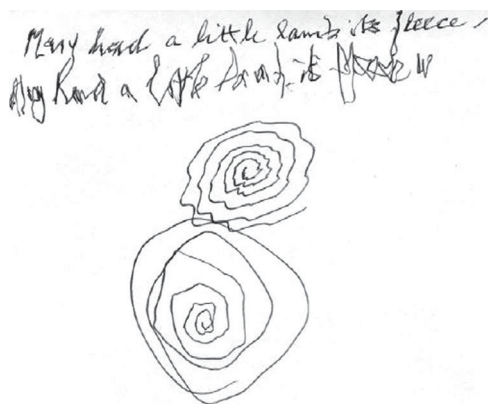 Mary had a little lamb its fleece,
Mary had a little lamb, its fleece w